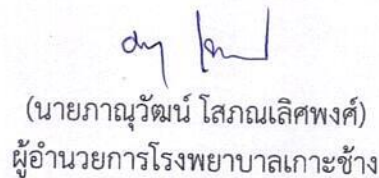 (นายภาณุวัฒน์ โสภณเลิศพงศ์)
ผู้อำนวยการโรงพยาบาลเกาะช้าง